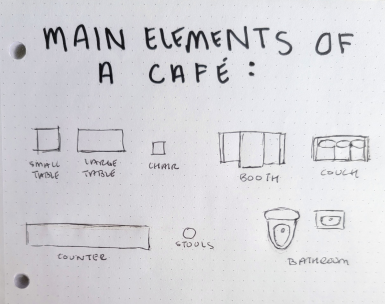 MAIN ELEMENTS OF
A CAFÉ:
SMALL
TABLE
LARGE
TABLE
CHAIR
BOOTH
COUCH
COUNTER
STOOLS
BATHROOM